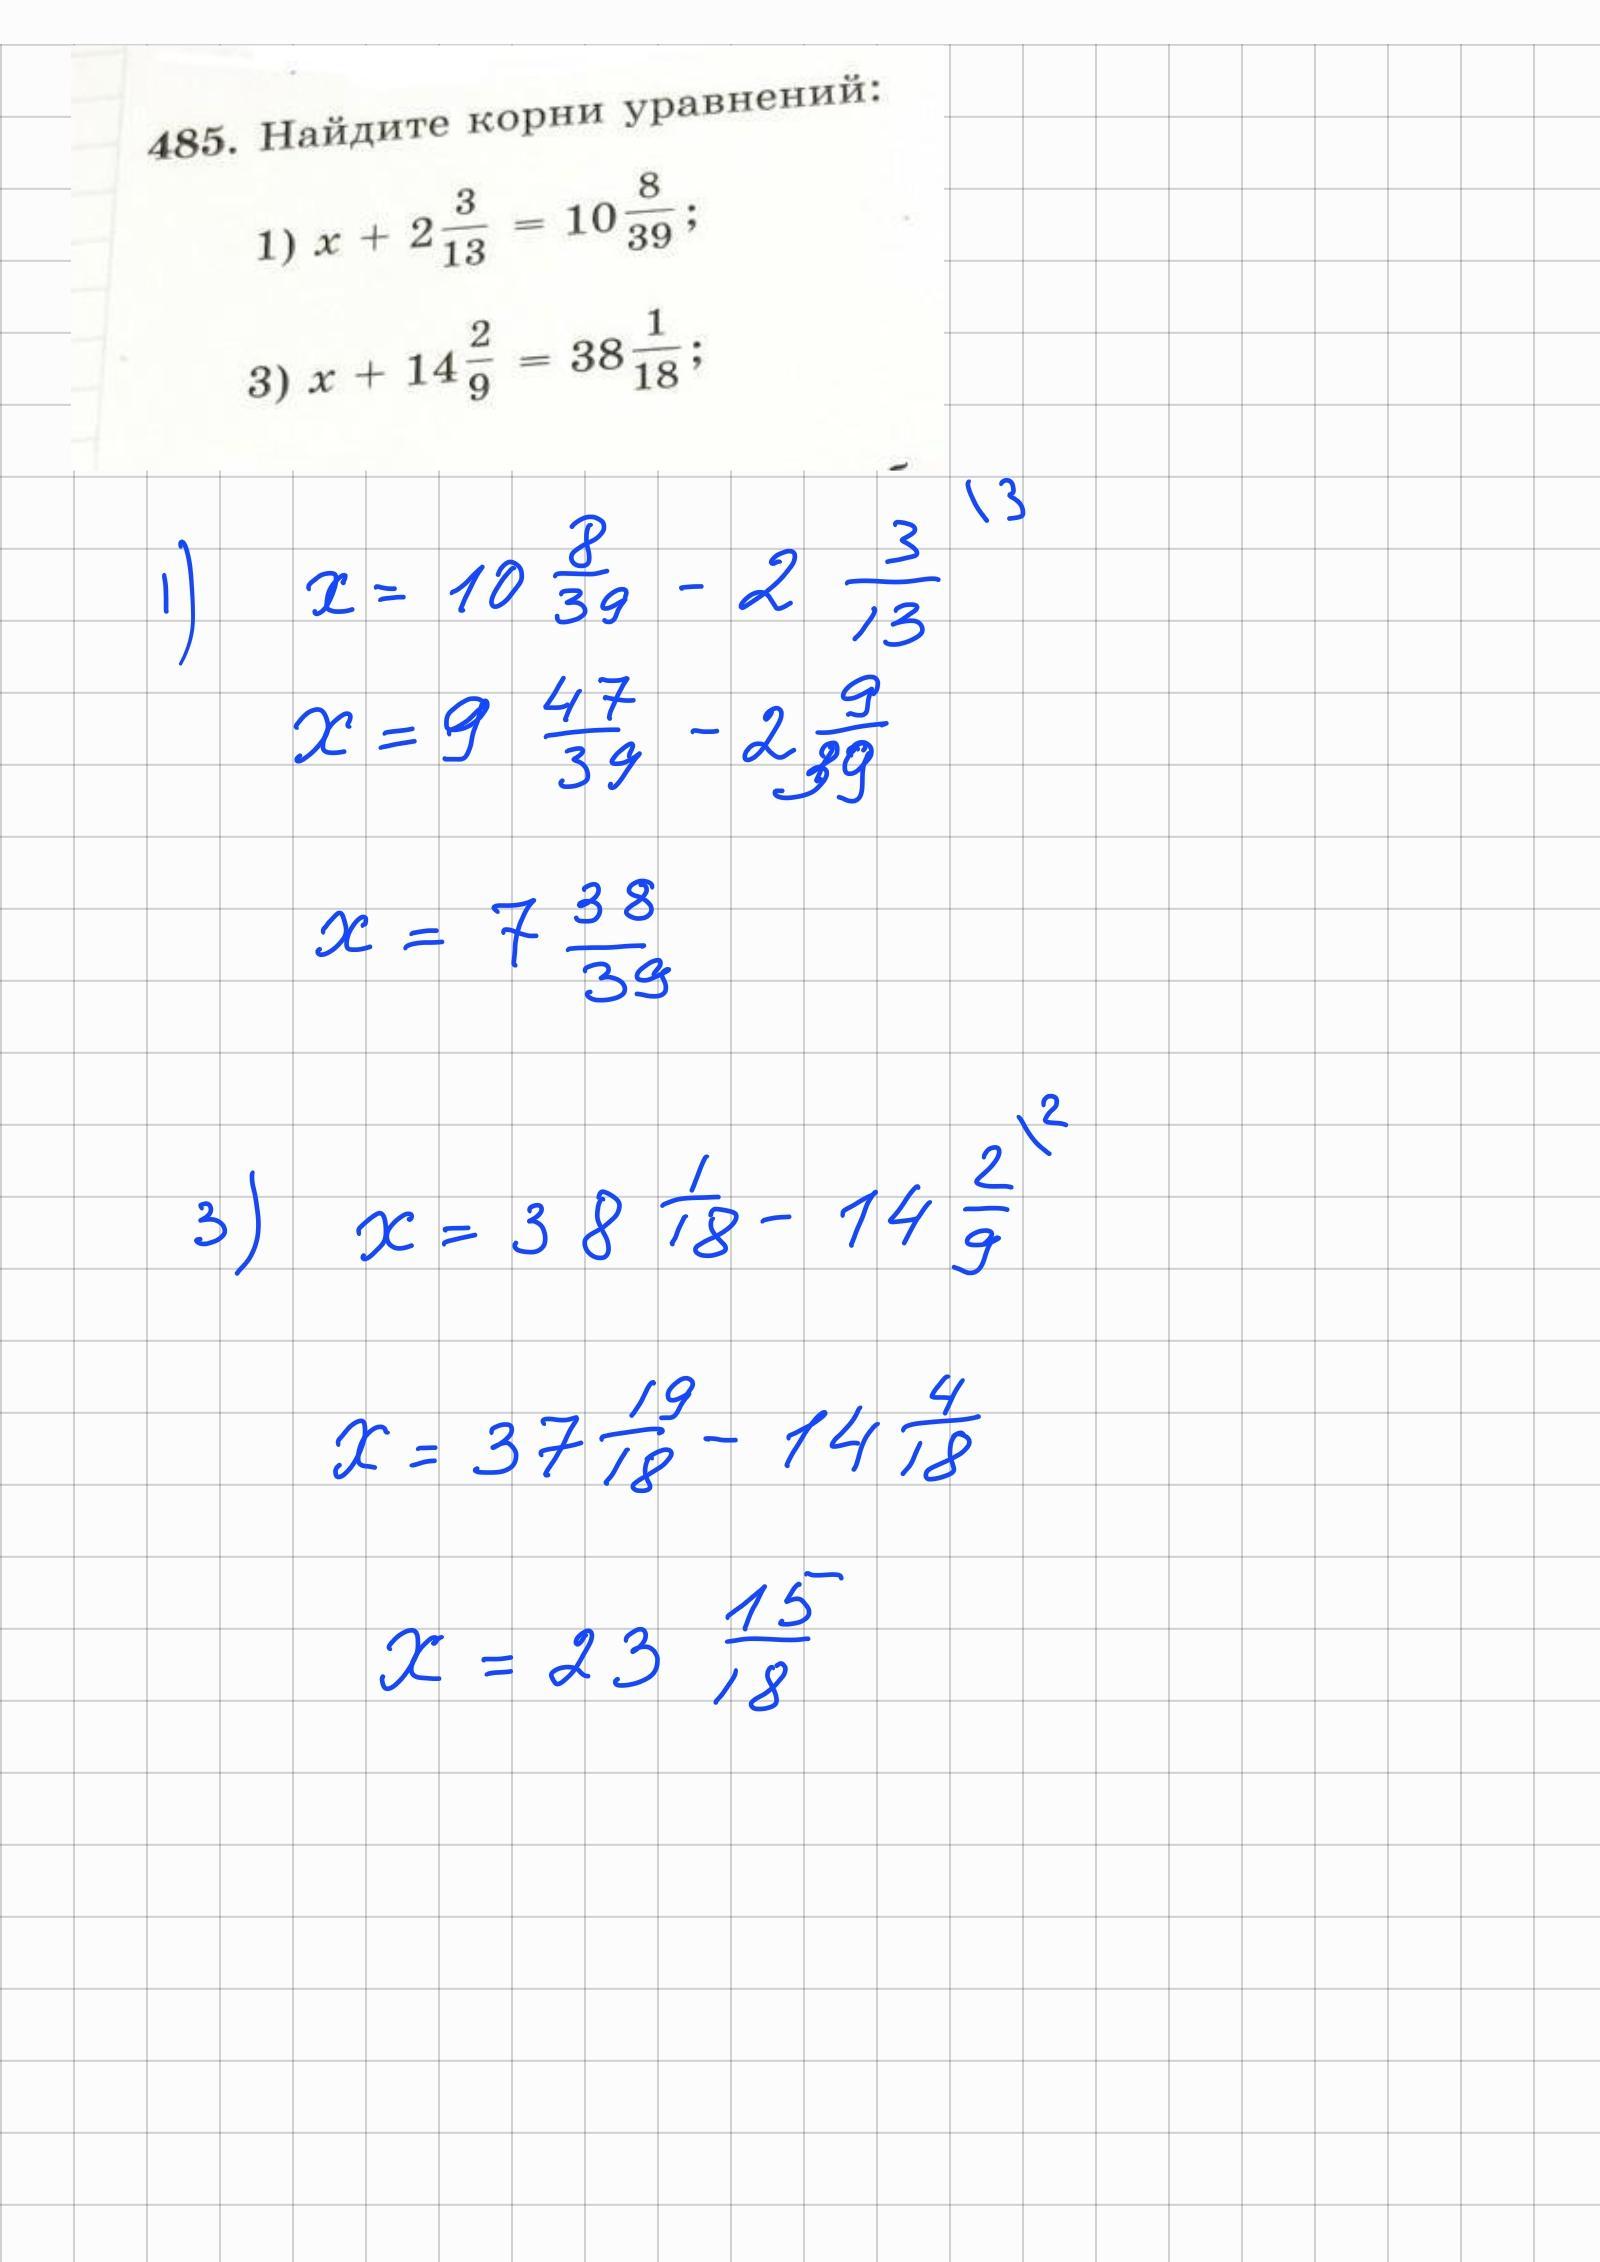 485. Найдите корни уравнений:
1) x + 2 3/13 = 10 8/39;
3) x + 14 2/9 = 38 1/18;
1) x = 10 8/39 - 2 3/13 \3
x = 9 47/39 - 2 9/39
x = 7 38/39
3) x = 38 1/18 - 14 2/9 \2
x = 37 19/18 - 14 4/18
x = 23 15/18